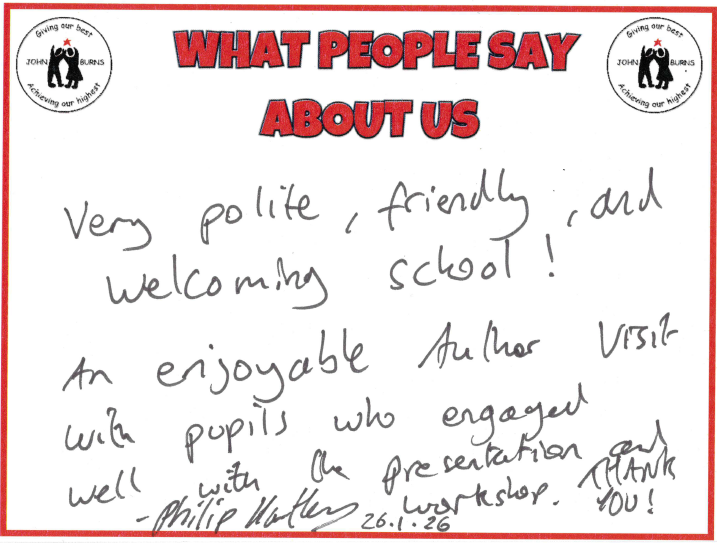 Giving our best
JOHN BURNS
Achieving our highest
WHAT PEOPLE SAY
ABOUT US
Giving our best
JOHN BURNS
Achieving our highest
Very polite, friendly, and
welcoming school!
An enjoyable Author Visit
with pupils who engaged
well with the presentation and
workshop. THANK
YOU!
- Philip
26.1.26